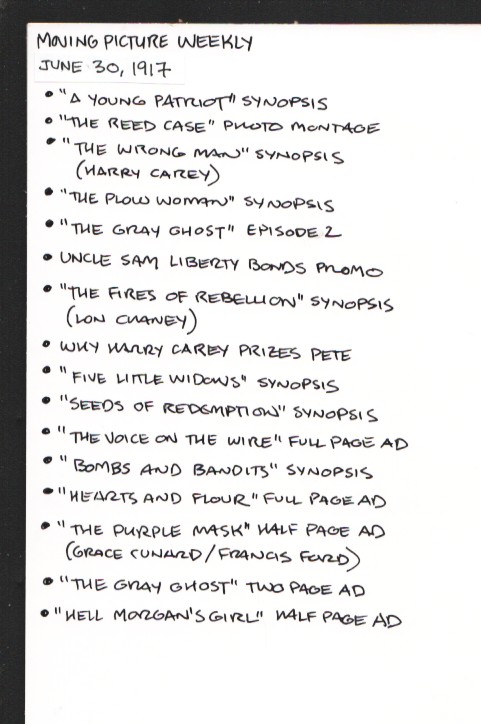 MOVING PICTURE WEEKLY
JUNE 30, 1917
• "A YOUNG PATRIOT" SYNOPSIS
• "THE REED CASE" PHOTO MONTAGE
• "THE WRONG MAN" SYNOPSIS
(HARRY CAREY)
• "THE PLOW WOMAN" SYNOPSIS
• "THE GRAY GHOST" EPISODE 2
• UNCLE SAM LIBERTY BONDS PROMO
• "THE FIRES OF REBELLION" SYNOPSIS
(LON CHANEY)
• WHY HARRY CAREY PRIZES PETE
• "FIVE LITTLE WIDOWS" SYNOPSIS
• "SEEDS OF REDEMPTION" SYNOPSIS
• "THE VOICE ON THE WIRE" FULL PAGE AD
• "BOMBS AND BANDITS" SYNOPSIS
• "HEARTS AND FLOUR" FULL PAGE AD
• "THE PURPLE MASK" HALF PAGE AD
(GRACE CUNARD/FRANCIS FORD)
• "THE GRAY GHOST" TWO PAGE AD
• "HELL MORGAN'S GIRL" HALF PAGE AD